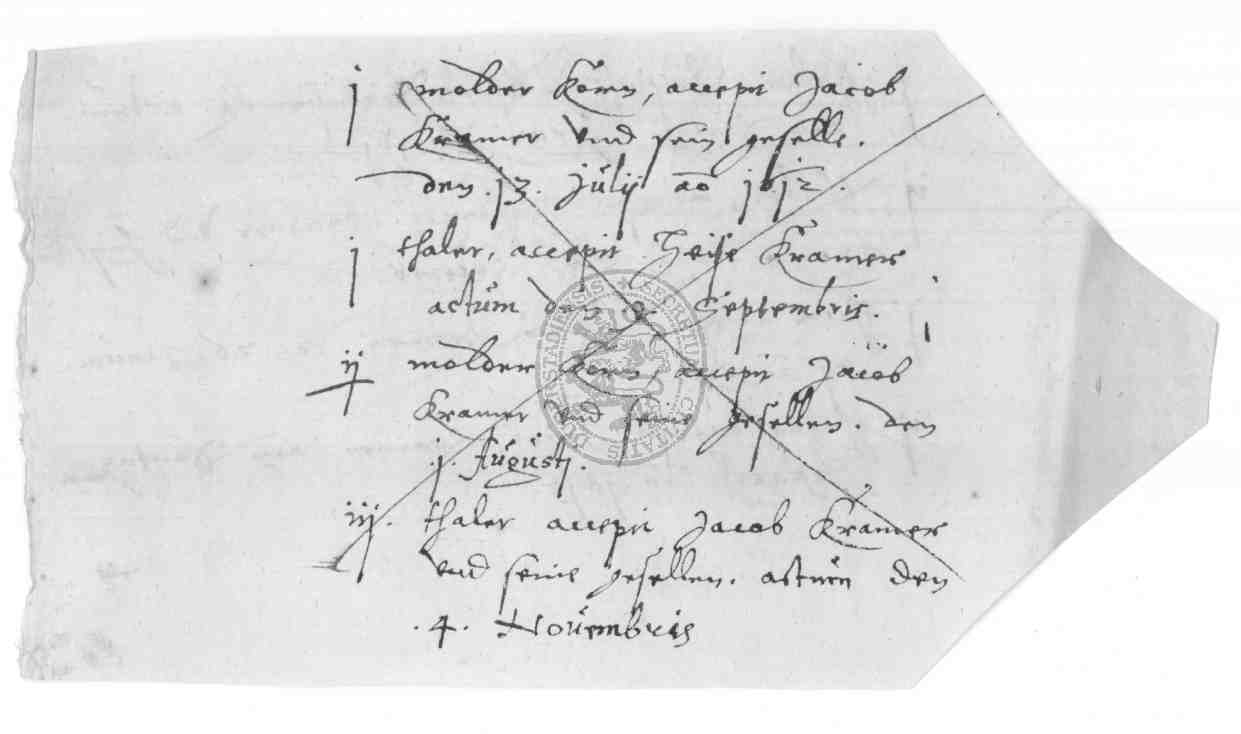 j molder Korn, accepit Jacob
Kramer vnd sein geselle.
den .13. Julij ao 1612.
j thaler, accepit Heise Kramer
actum den 2 Septembris.
ij molder Korn, accepit Jacob
Kramer vnd seine gesellen. den
.j. Augusti.
iij. thaler accepit Jacob Kramer
vnd seine gesellen. actum den
.4. Novembris
SECRETUM CIVITATIS DUDERSTADIENSIS